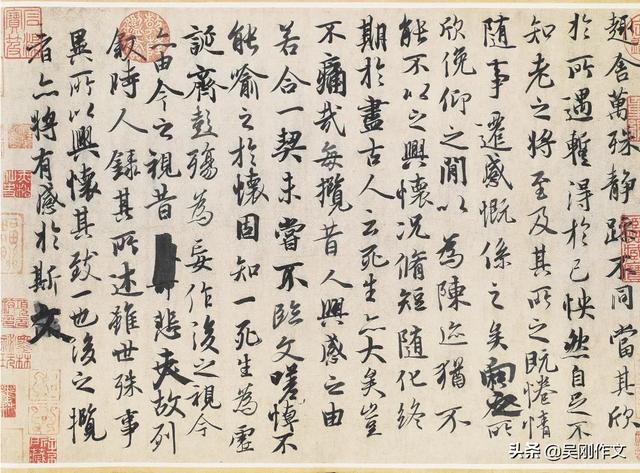 趣舍萬殊静躁不同當其欣
於所遇蹔得於己怏然自足不
知老之將至及其所之既惓情
隨事遷感慨係之矣向之所
欣俛仰之間以為陳迹猶不
能不以之興懷況脩短隨化終
期於盡古人云死生亦大矣豈
不痛哉每攬昔人興感之由
若合一契未嘗不臨文嗟悼不
能喻之於懷固知一死生為虛
誕齊彭殤為妄作後之視今
亦由今之視昔悲夫故列
叙時人錄其所述雖世殊事
異所以興懷其致一也後之攬
者亦將有感於斯文
头条 @吴刚作文